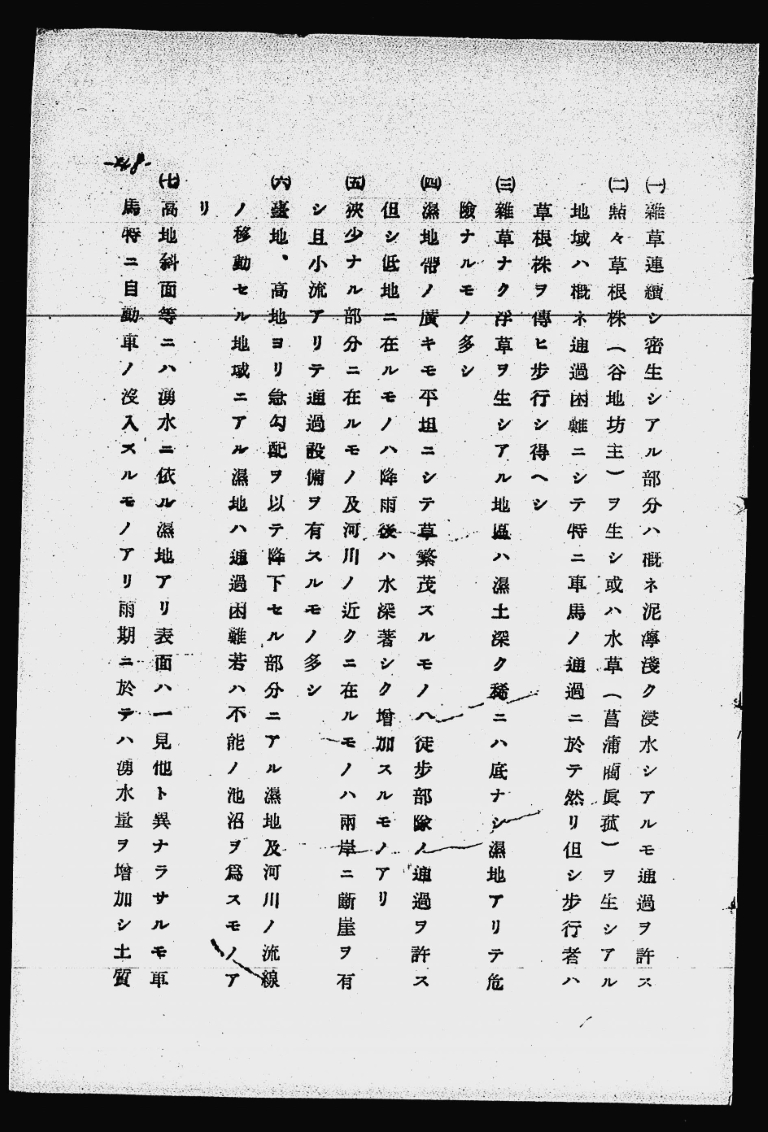 -248-
㈠雜草連續シ密生シアル部分ハ概ネ泥濘淺ク浸水シアルモ通過ヲ許ス
㈡點々草根株(谷地坊主)ヲ生シ或ハ水草(菖蒲藺眞菰)ヲ生シアル
地域ハ概ネ通過困難ニシテ特ニ車馬ノ通過ニ於テ然リ但シ步行者ハ
草根株ヲ傳ヒ步行シ得ヘシ
㈢雜草ナク浮草ヲ生シアル地區ハ濕土深ク稀ニハ底ナシ濕地アリテ危
險ナルモノ多シ
㈣濕地帶ノ廣キモ平坦ニシテ草繁茂スルモノハ徒步部隊ノ通過ヲ許ス
但シ低地ニ在ルモノハ降雨後ハ水深著シク增加スルモノアリ
㈤狹少ナル部分ニ在ルモノ及河川ノ近クニ在ルモノハ兩岸ニ斷崖ヲ有
シ且小流アリテ通過設備ヲ有スルモノ多シ
㈥臺地、高地ヨリ急勾配ヲ以テ降下セル部分ニアル濕地及河川ノ流線
ノ移動セル地域ニアル濕地ハ通過困難若ハ不能ノ池沼ヲ爲スモノア
リ
㈦高地斜面等ニハ湧水ニ依ル濕地アリ表面ハ一見他ト異ナラサルモ車
馬特ニ自動車ノ沒入スルモノアリ雨期ニ於テハ湧水量ヲ增加シ土質